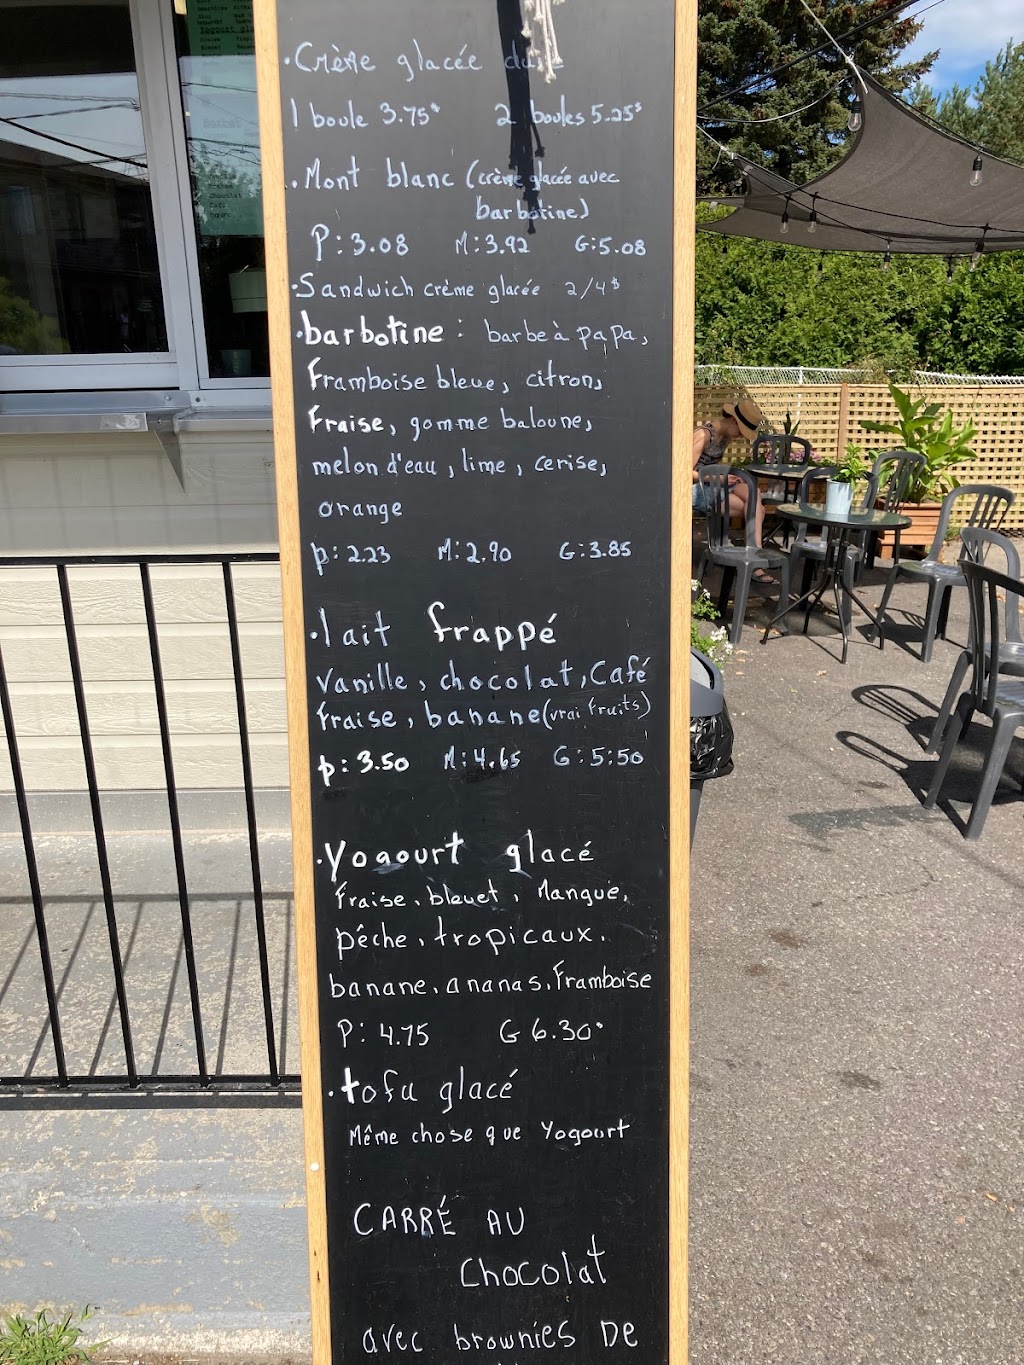 Yogourt gl
· Crème glacée dure
1 boule 3.75$ 2 boules 5.25$
· Mont blanc (crème glacée avec
barbotine)
P: 3.08 M: 3.92 G: 5.08
· Sandwich crème glacée 2/4$
· barbotine : barbe à papa,
Framboise bleue, citron,
Fraise, gomme baloune,
melon d'eau, lime, cerise,
orange
p: 2.23 M: 2.90 G: 3.85
· lait frappé
Vanille, chocolat, Café
fraise, banane (vrai fruits)
p: 3.50 M: 4.65 G: 5:50
· Yogourt glacé
Fraise, bleuet, Mangue,
pêche, tropicaux,
banane, ananas, Framboise
P: 4.75 G 6.30
· tofu glacé
Même chose que Yogourt
CARRÉ AU
chocolat
avec brownies DE